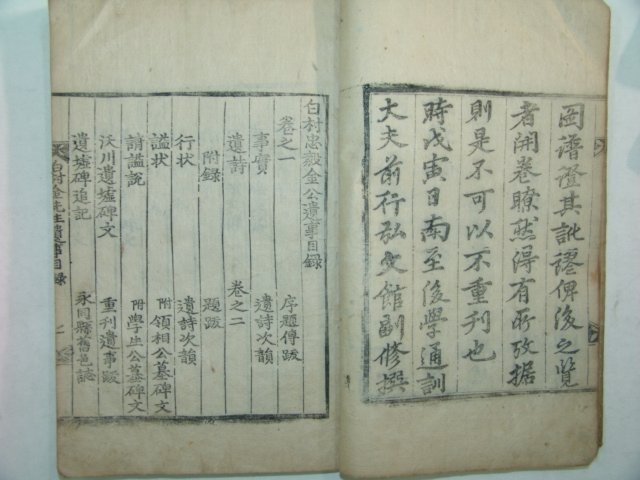 圖譜證其訛謬俾後之覽
者開卷瞭然得有所攷据
則是不可以不重刊也
時戊寅日南至後學通訓
大夫前行弘文館副修撰
白村忠毅金公遺事目錄
卷之一
事實
遺詩
附錄
行狀
諡狀
請諡說
沃川遺墟碑文
遺墟碑追記
序題傳跋
遺詩次韻
卷之二
題跋
遺詩次韻
附領相公墓碑文
附學生公墓碑文
重刊遺事跋
永同縣舊邑誌
白村金先生遺事目錄
一